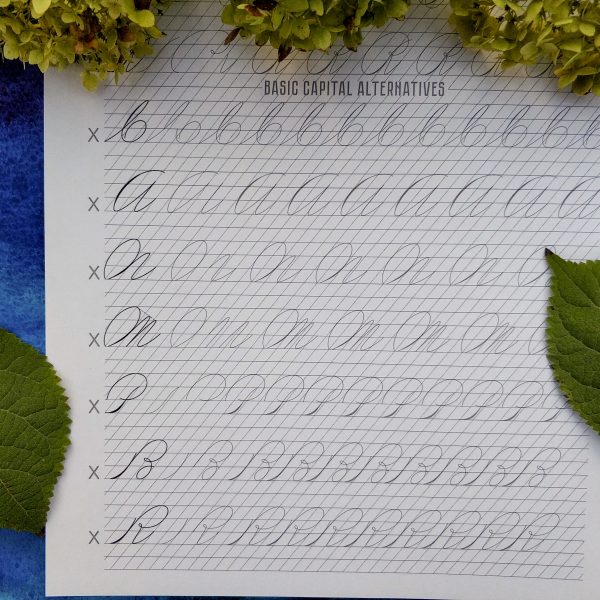 BASIC CAPITAL ALTERNATIVES
X
X A A A A A A A A A
X N N N N N N
X M M M M M M
X P P P P P P P P P P
X B B B B B B B B B B
X R R R R R R R R R R